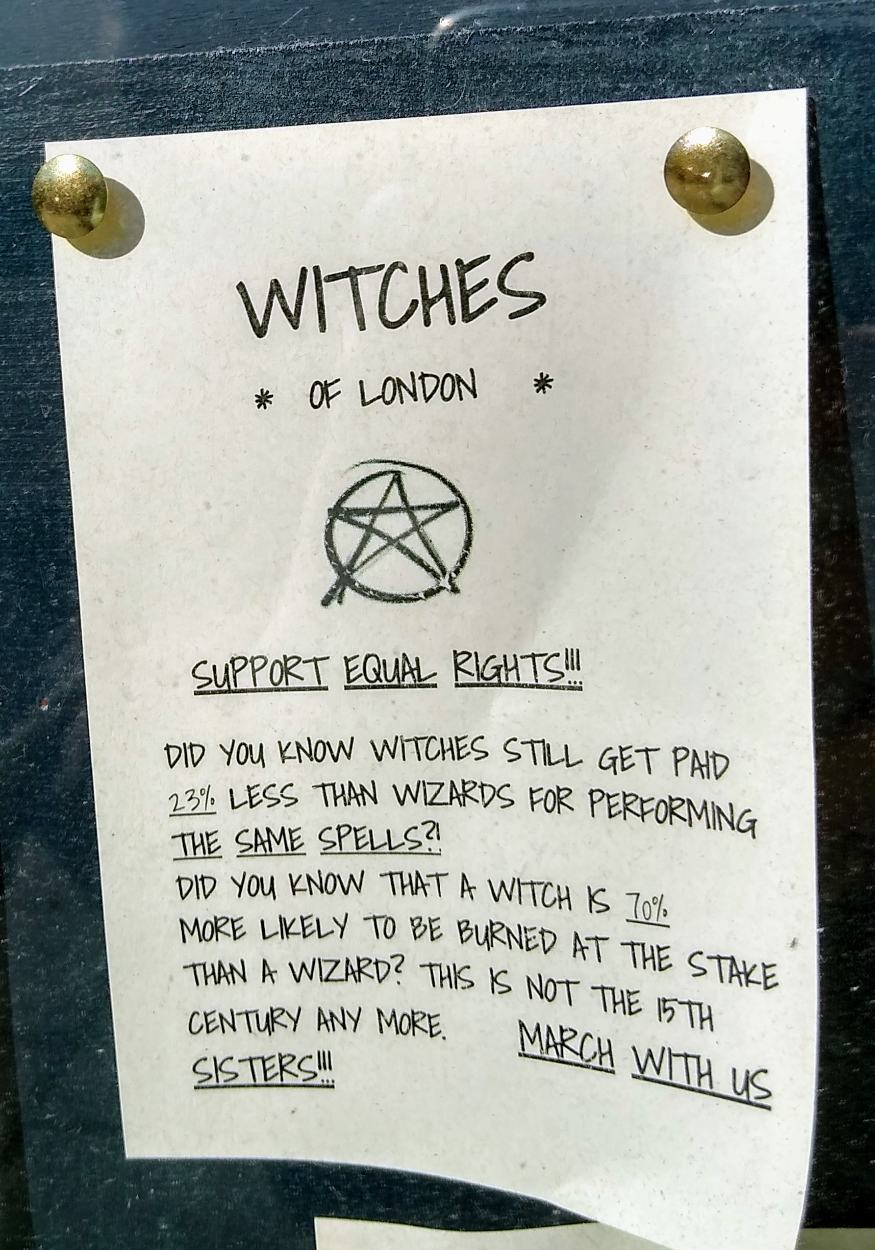 WITCHES
* OF LONDON *
SUPPORT EQUAL RIGHTS!!!
DID YOU KNOW WITCHES STILL GET PAID
23% LESS THAN WIZARDS FOR PERFORMING
THE SAME SPELLS?!
DID YOU KNOW THAT A WITCH IS 70%
MORE LIKELY TO BE BURNED AT THE STAKE
THAN A WIZARD? THIS IS NOT THE 15TH
CENTURY ANY MORE. MARCH WITH US
SISTERS!!!